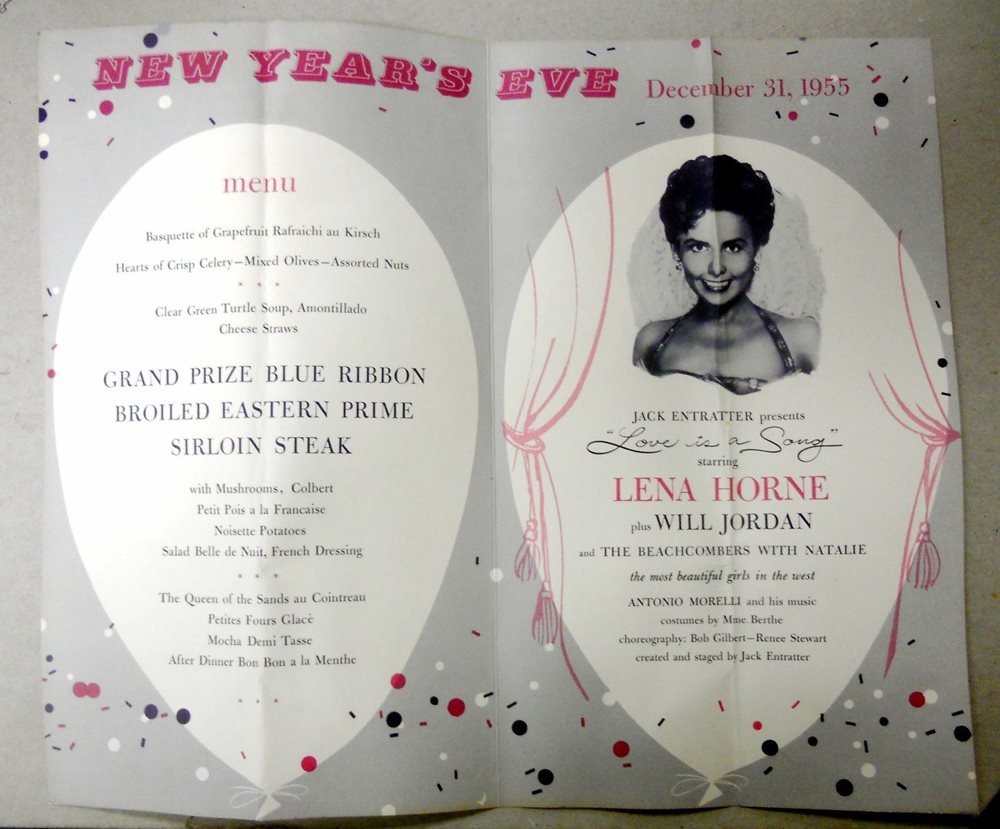 NEW YEAR'S EVE December 31, 1955
menu
Basquette of Grapefruit Rafraichi au Kirsch
Hearts of Crisp Celery—Mixed Olives—Assorted Nuts
Clear Green Turtle Soup, Amontillado
Cheese Straws
GRAND PRIZE BLUE RIBBON
BROILED EASTERN PRIME
SIRLOIN STEAK
with Mushrooms, Colbert
Petit Pois a la Francaise
Noisette Potatoes
Salad Belle de Nuit, French Dressing
The Queen of the Sands au Cointreau
Petites Fours Glacé
Mocha Demi Tasse
After Dinner Bon Bon a la Menthe
JACK ENTRATTER presents
"Love is a Song"
starring
LENA HORNE
plus WILL JORDAN
and THE BEACHCOMBERS WITH NATALIE
the most beautiful girls in the west
ANTONIO MORELLI and his music
costumes by Mme. Berthe
choreography: Bob Gilbert—Renee Stewart
created and staged by Jack Entratter